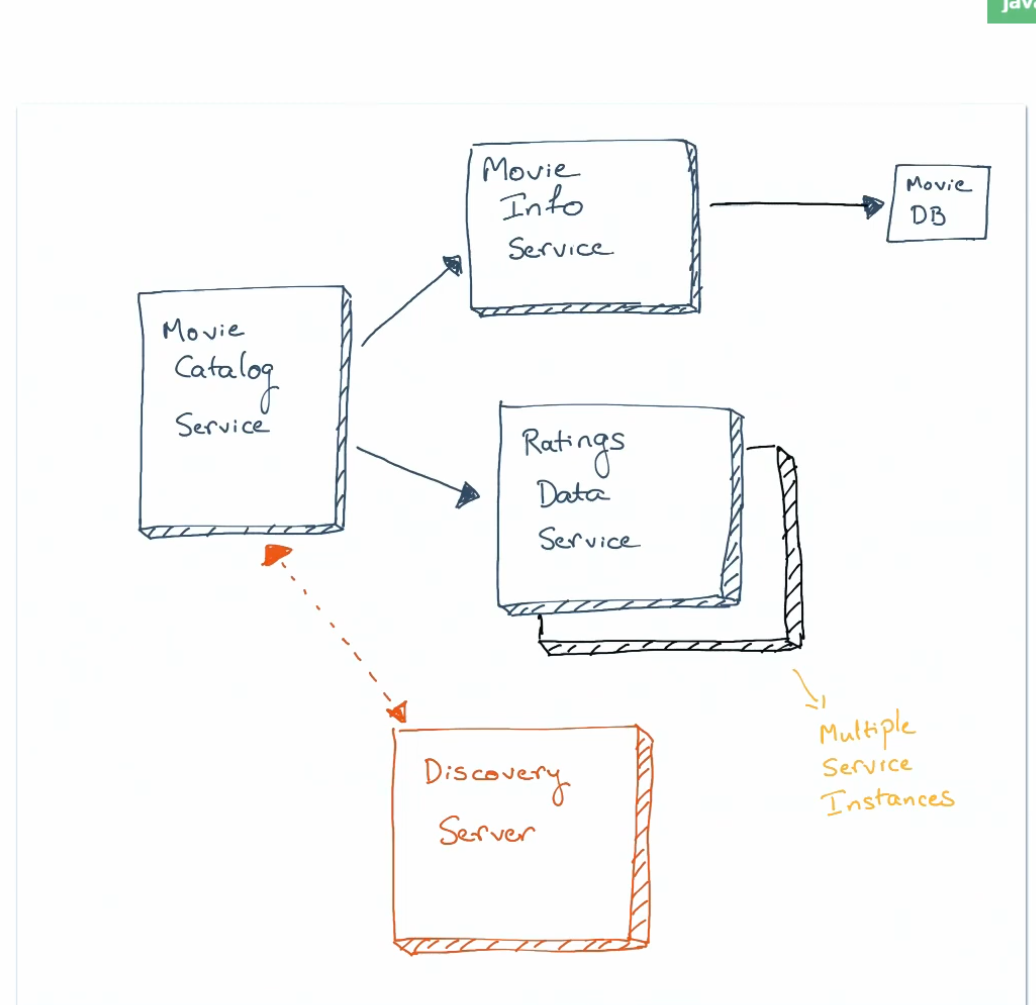 Movie
Info
Service
Movie
DB
Movie
Catalog
Service
Ratings
Data
Service
Multiple
Service
Instances
Discovery
Server